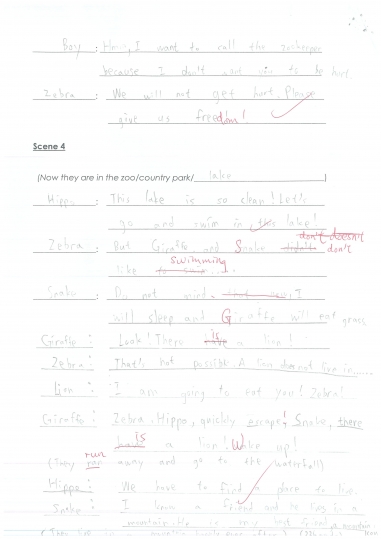 Boy : Hmm, I want to call the zookeeper
because I don't want you to be hurt.
Zebra : We will not get hurt. Please
give us freedom!
Scene 4
(Now they are in the zoo/country park/ lake )
Hippo : This lake is so clean! Let's
go and swim in this lake!
don't doesn't
Zebra : But Giraffe and Snake didn't don't
swimming
like to swim...
Snake : Do not mind, I
will sleep and Giraffe will eat grass
is
Giraffe : Look! There have a lion!
Zebra : That's not possible. A lion does not live in......
Lion : I am going to eat you! Zebra!
Giraffe : Zebra, Hippo, quickly escape! Snake, there
is
have a lion! Wake up!
run
(They ran away and go to the waterfall)
Hippo : We have to find a place to live.
Snake : I know a friend and he lives in a
mountain. He is my best friend